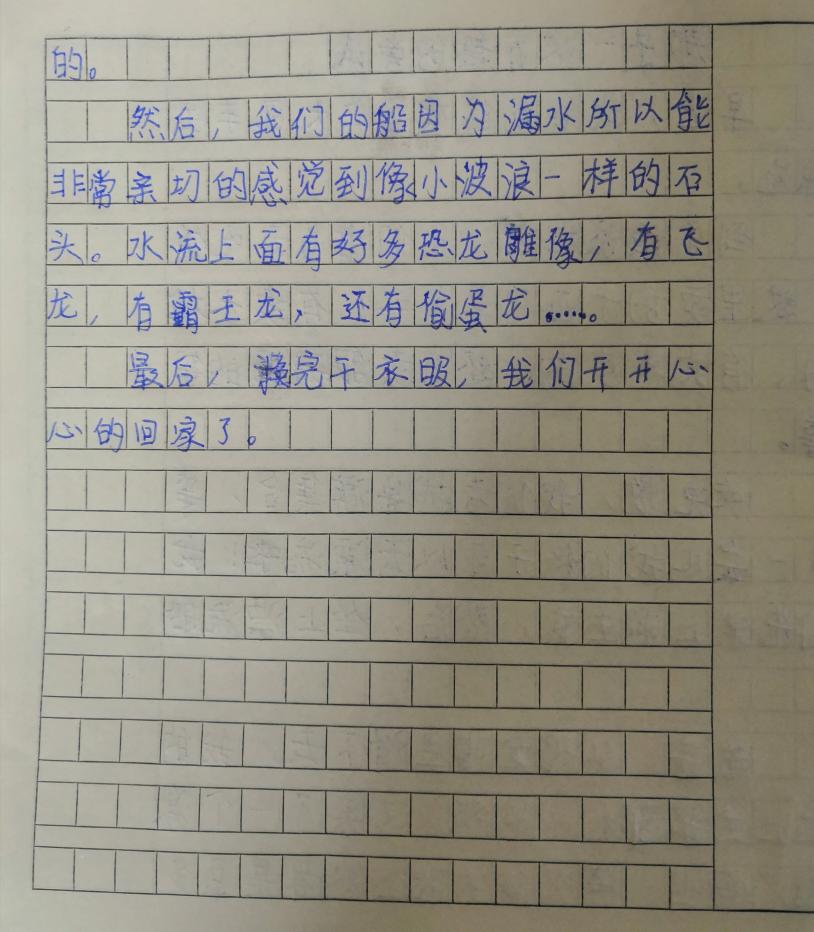 的。
然后，我们的船因为漏水所以能
非常亲切的感觉到像小波浪一样的石
头。水流上面有好多恐龙雕像，有飞
龙，有霸王龙，还有偷蛋龙……。
最后，换完干衣服，我们开开心
心的回家了。